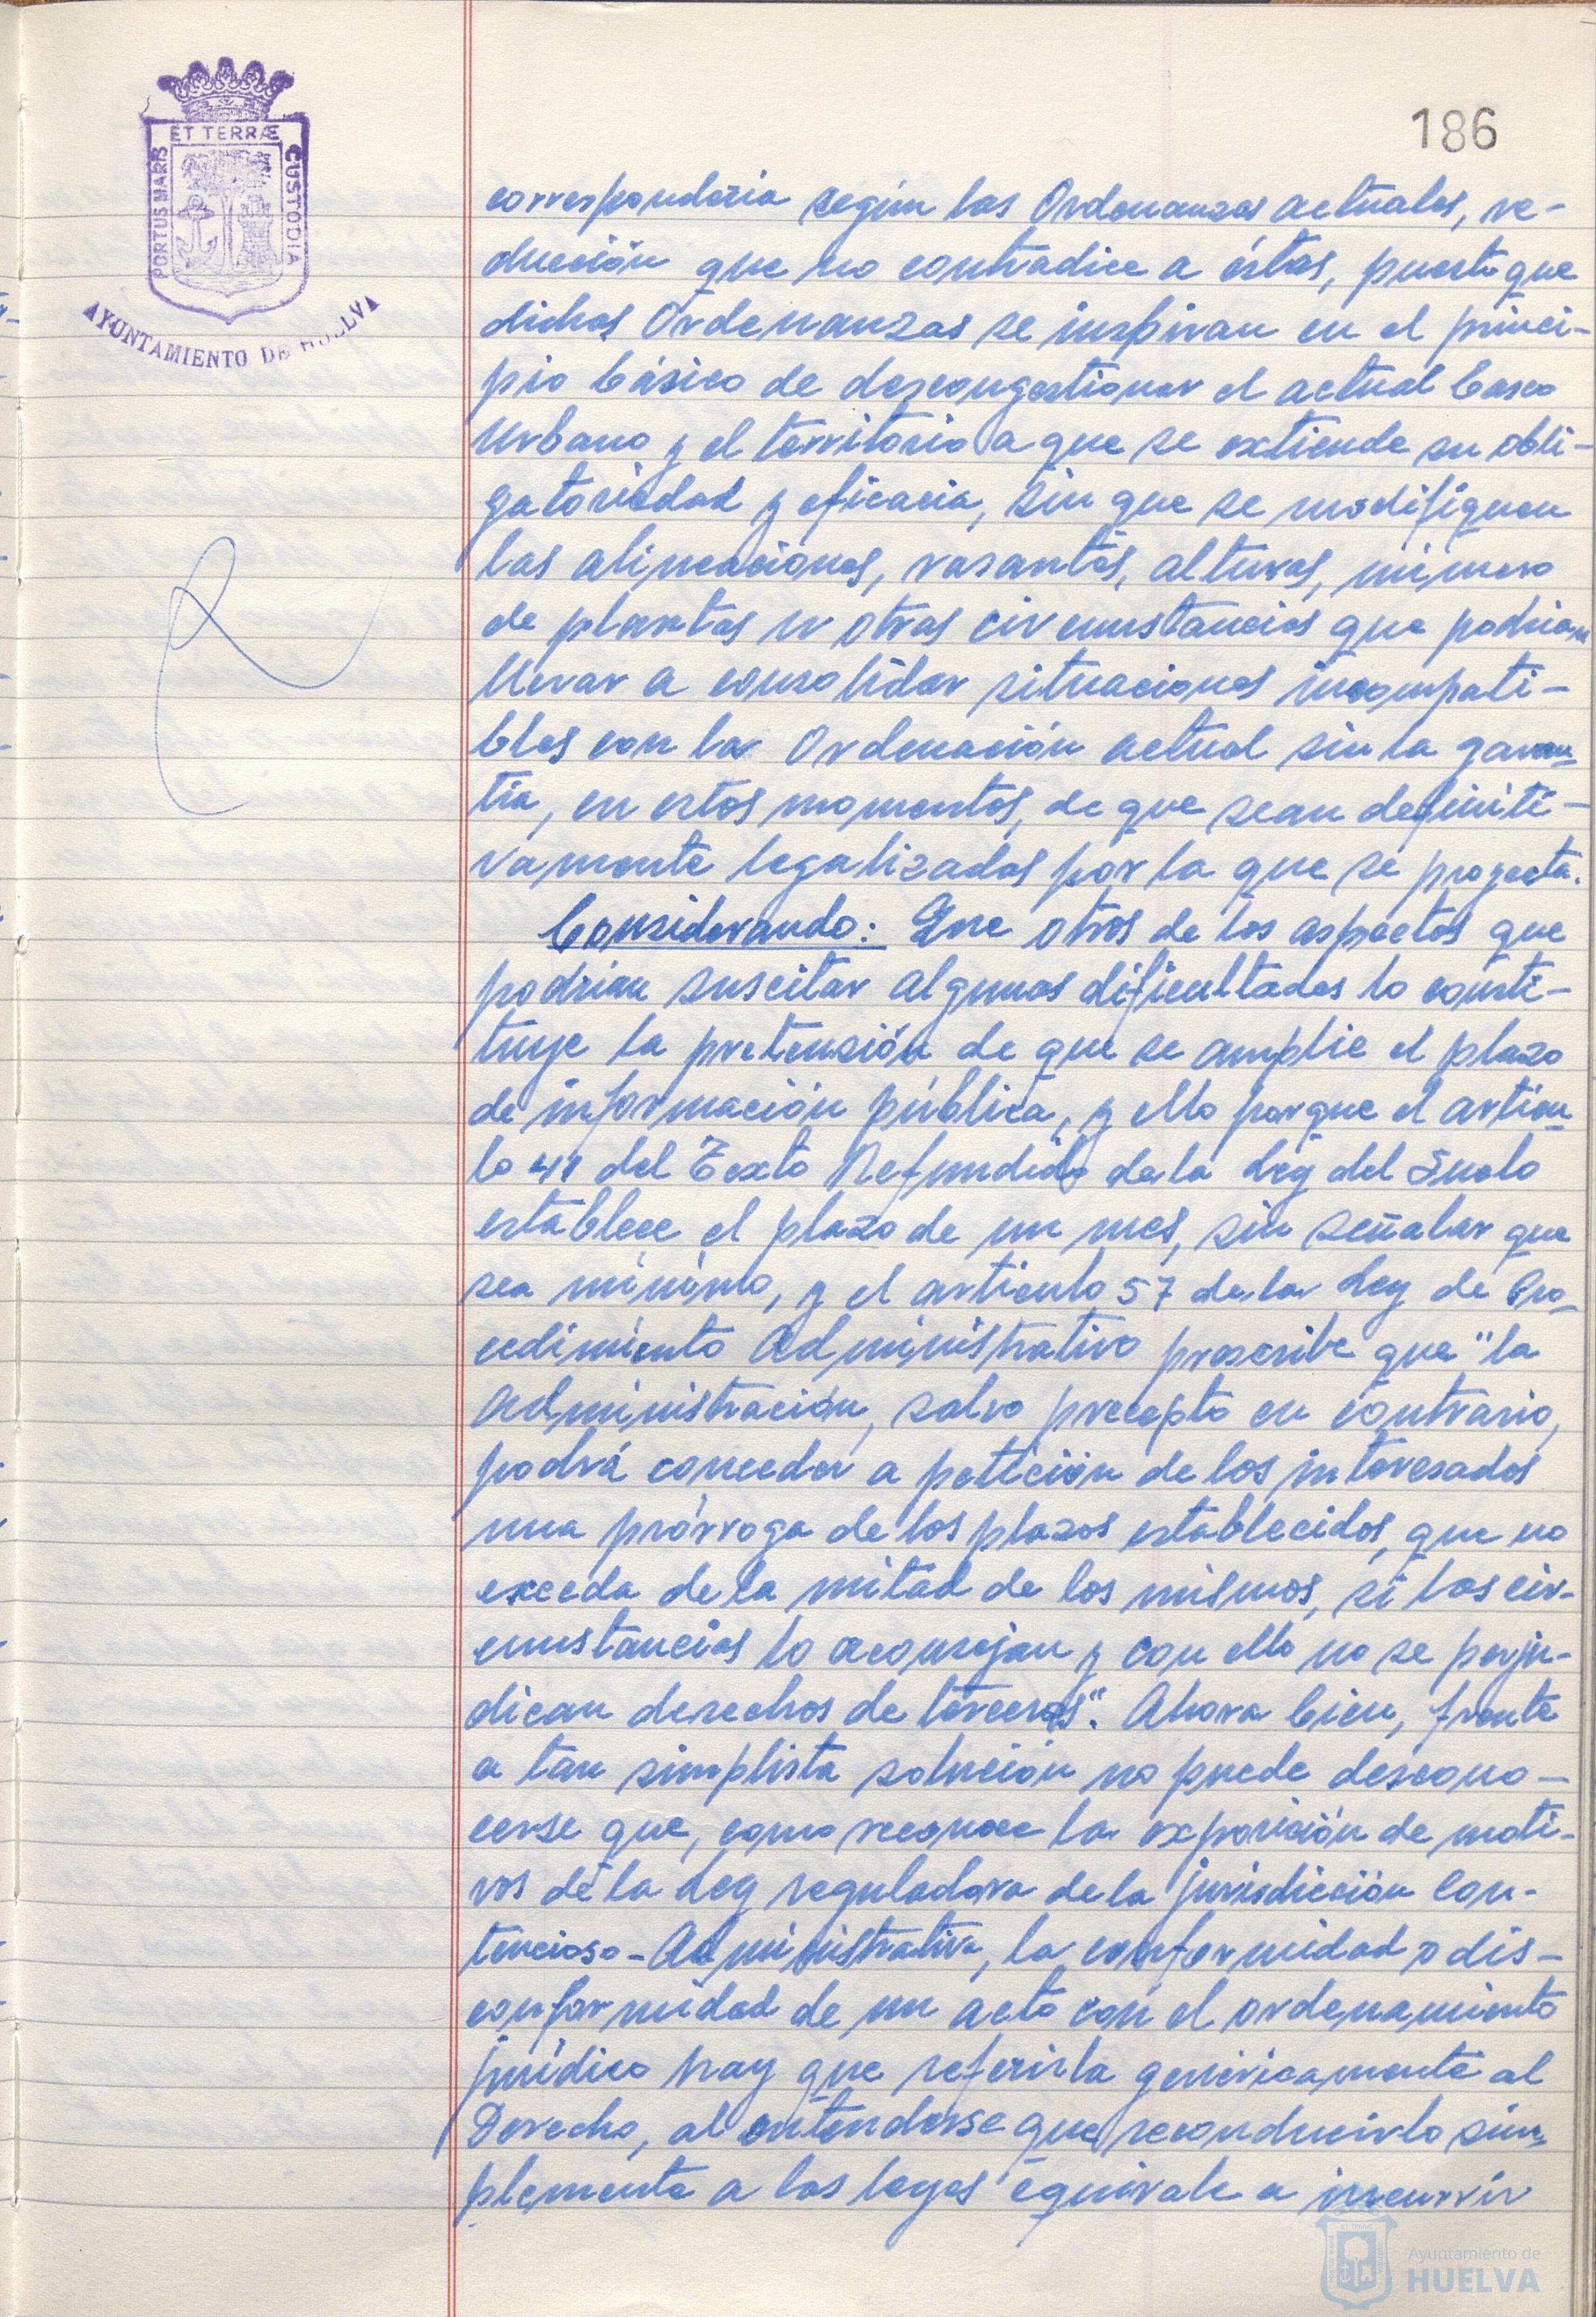 186
ET TERRÆ
PORTUS MARIS
CUSTODIA
AYUNTAMIENTO DE HUELVA
correspondería según las Ordenanzas actuales, re-
ducción que no contradice a éstas, puesto que
dichas Ordenanzas se inspiran en el princi-
pio básico de descongestionar el actual Casco
Urbano y el territorio a que se extiende su obli-
gatoriedad y eficacia, sin que se modifiquen
las alineaciones, rasantes, alturas, número
de plantas u otras circunstancias que podrían
llevar a consolidar situaciones incompati-
bles con la Ordenación actual sin la garan-
tía, en estos momentos, de que sean definiti-
vamente legalizadas por la que se proyecta.
Considerando: Que otros de los aspectos que
podrían suscitar algunas dificultades lo consti-
tuye la pretensión de que se amplie el plazo
de información pública, y ello porque el artícu-
lo 41 del Texto Refundido de la Ley del Suelo
establece el plazo de un mes, sin señalar que
sea mínimo, y el artículo 57 de la Ley de Pro-
cedimiento Administrativo prescribe que "la
Administración, salvo precepto en contrario,
podrá conceder a petición de los interesados
una prórroga de los plazos establecidos, que no
exceda de la mitad de los mismos, si las cir-
cunstancias lo aconsejan y con ello no se perju-
dican derechos de terceros". Ahora bien, frente
a tan simplista solución no puede descono-
cerse que, como reconoce la exposición de moti-
vos de la Ley reguladora de la jurisdicción Con-
tencioso-Administrativa, la conformidad o dis-
conformidad de un acto con el ordenamiento
jurídico hay que referirla genéricamente al
Derecho, al entenderse que reconducirlo sim-
plemente a las leyes equivale a incurrir
Ayuntamiento de
HUELVA